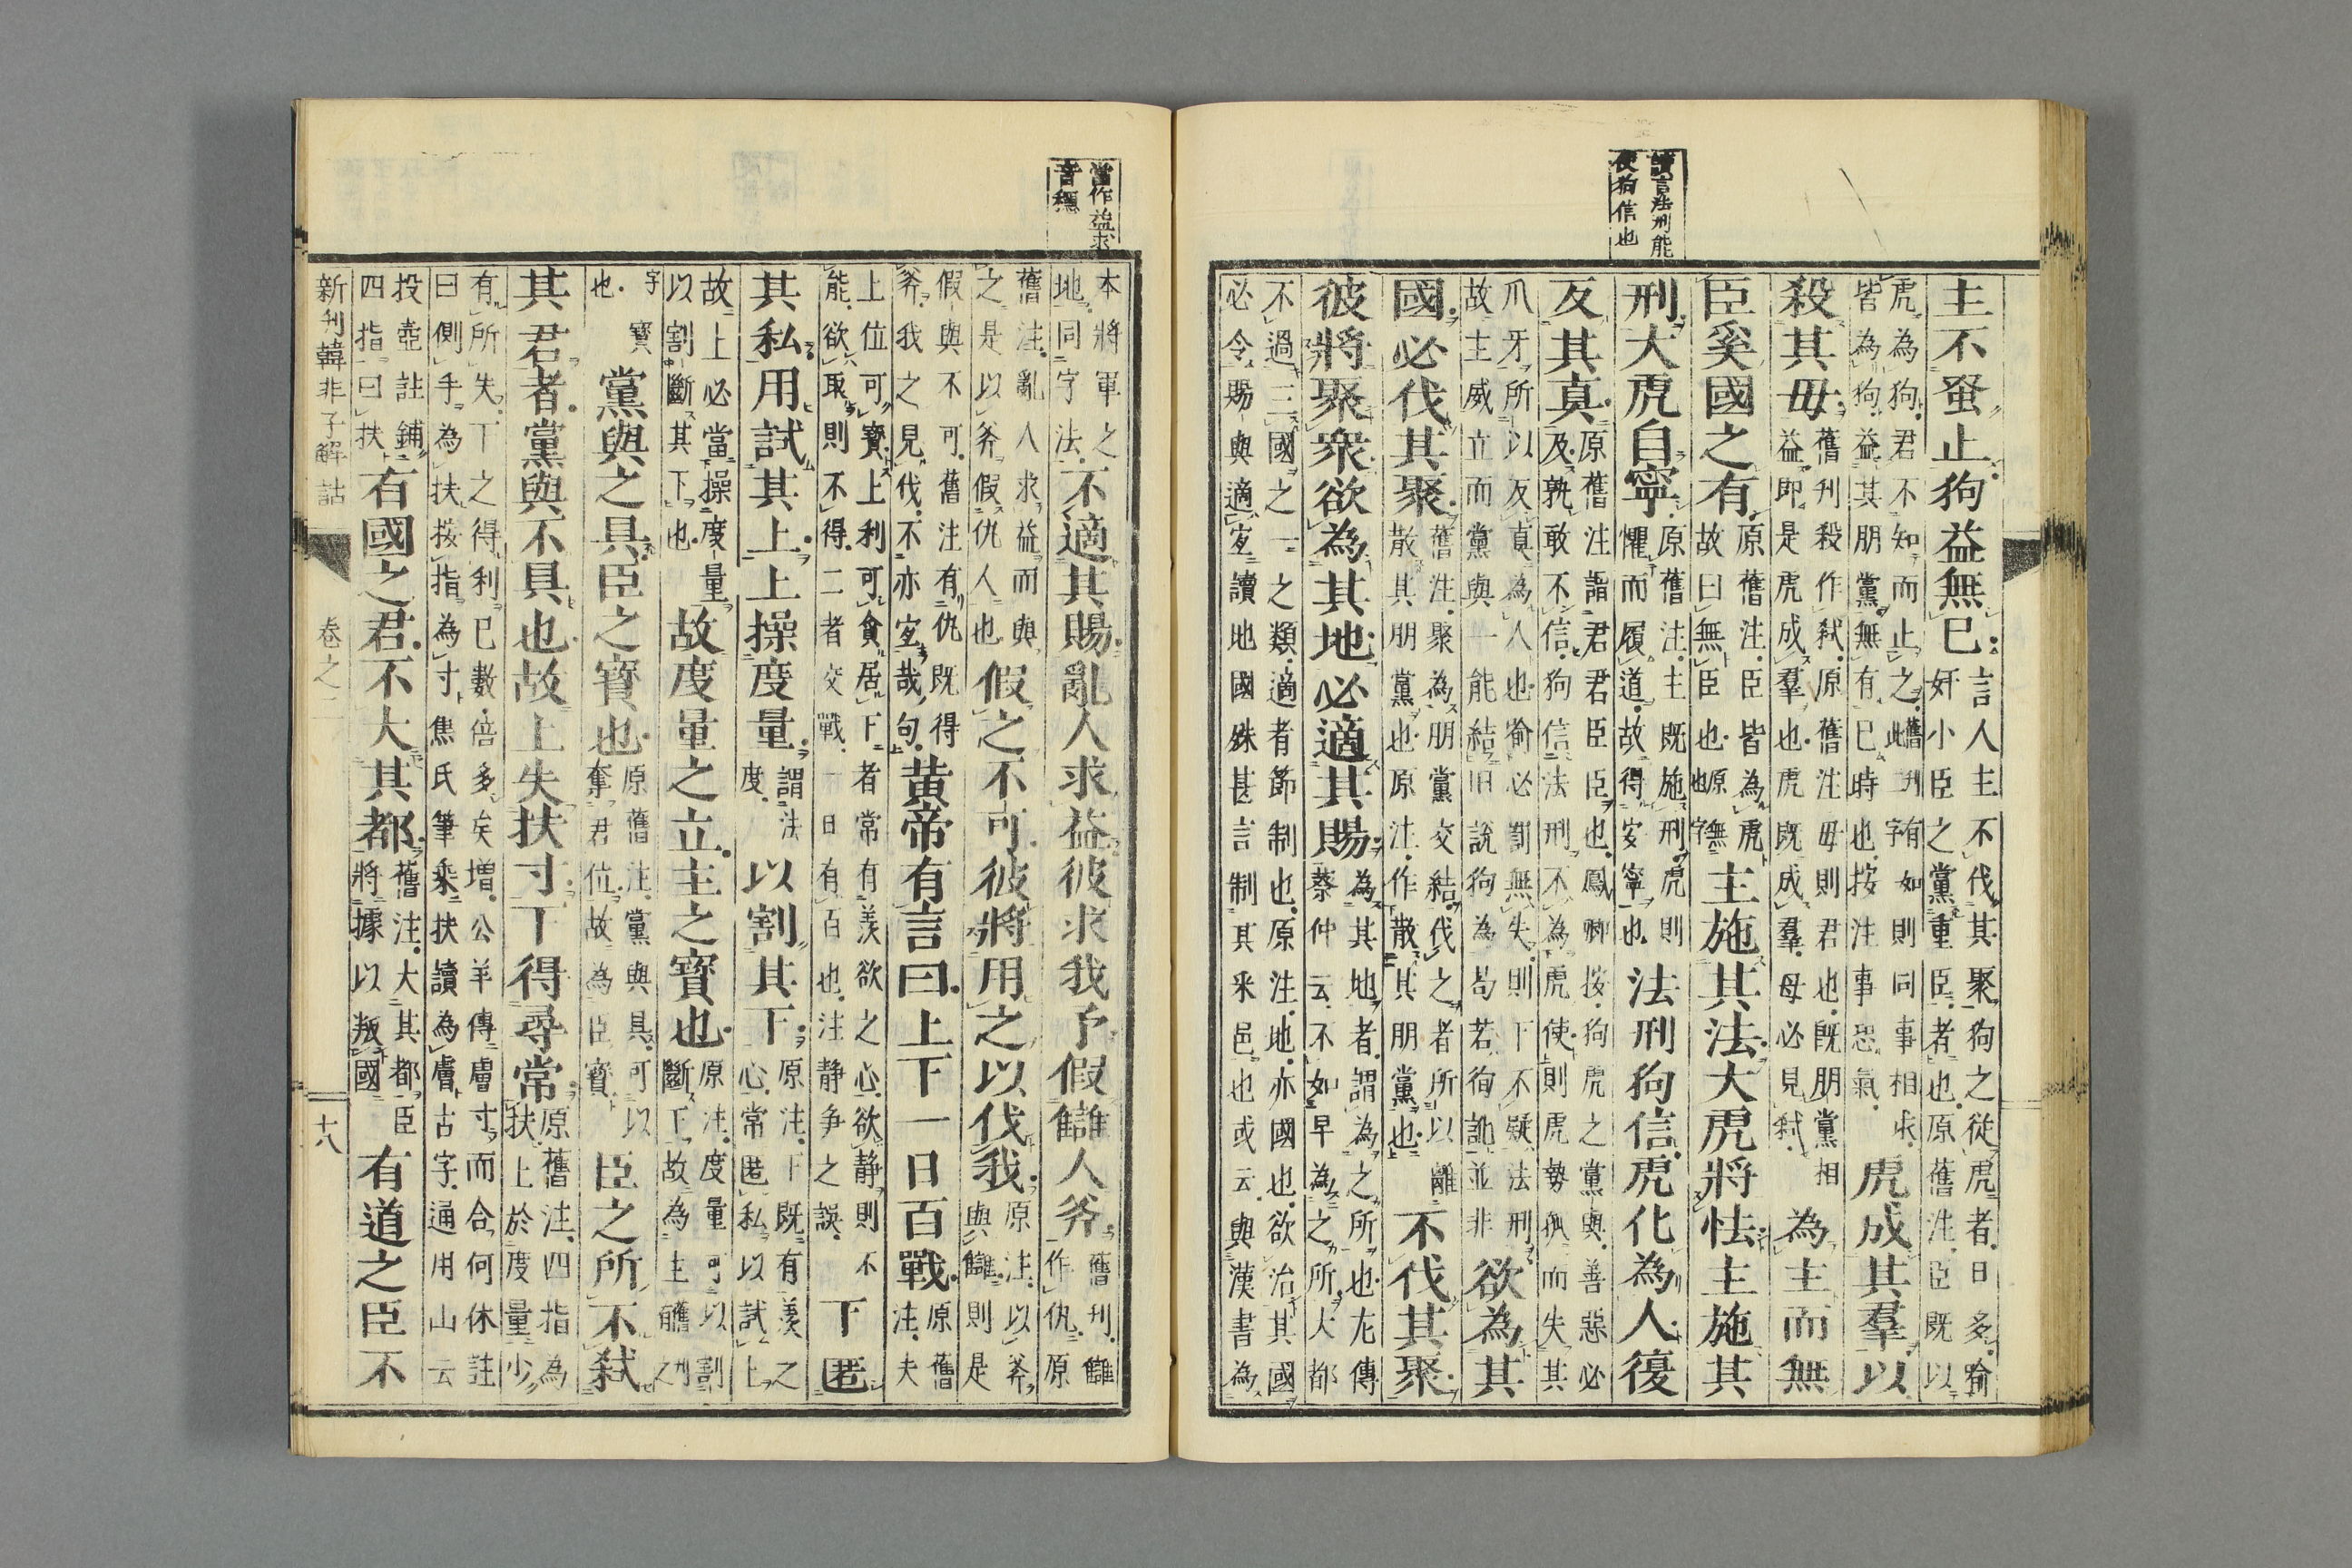 讀言法刑能
使狗信也
主不蚤止狗益無已言人主不伐其聚狗之從虎者日多喻
奸小臣之黨重臣者也原舊注臣既以
虎為狗君不知而止之舊刊有如則同事相求
皆為狗益其朋黨無有已時也按注事恐氣虎成其羣以
殺其母舊刊殺作弑原舊注母則君也既朋黨相
益即是虎成羣也虎既成羣母必見弑為主而無
臣奚國之有原舊注臣皆為虎
故曰無臣也原無也字主施其法大虎將怯主施其
刑大虎自寧原舊注主既施刑虎則
懼而履道故得安寧也法刑狗信虎化為人復
反其真原舊注謂君君臣臣也鳳卿按狗虎之黨與善惡必
反孰敢不信狗信法刑不為虎使則虎勢孤而失其
爪牙所以反真為人也喻必罰無失則下不疑法刑
故主威立而黨與能結旧說狗為苟若徇訛並非欲為其
國必伐其聚舊注聚為朋黨交結伐之者所以離
散其朋黨也原注作散其朋黨也不伐其聚
彼將聚衆欲為其地必適其賜為其地者謂為之所也左傳
蔡仲云不如早為之所大都
不過三國之一之類適者節制也原注地亦國也欲治其國
必令賜與適宜讀地國殊甚言制其采邑也或云與漢書為
當作益求
音穩
本將軍之
地同字法不適其賜亂人求益彼求我予假讎人斧舊刊讎
作仇原
舊注亂人求益而與
之是以斧假仇人也假之不可彼將用之以伐我原注以斧
與讎則是
假與不可舊注有仇既得
斧我之見伐不亦宜哉句黄帝有言曰上下一日百戰原舊
注夫
上位可寶上利可貪居下者常有羨欲之心欲静則不
能欲取則不得二者交戰一日有百也注静争之誤下匿
其私用試其上上操度量謂法
度以割其下原注下既有羨之
心常匿私以試上
故上必當操度量
以割斷其下也故度量之立主之寶也原注度量可以割
斷下故為主寶舊刊之
字
也寶黨與之具臣之寶也原舊注黨與具可以
奪君位故為臣寶臣之所不弑
其君者黨與不具也故上失扶寸下得尋常原舊注四指為
扶上於度量少
有所失下之得利已數倍多矣増公羊傳膚寸而合何休註
曰側手為扶按指為寸焦氏筆乘扶讀為膚古字通用山云
投壺註鋪
四指曰扶有國之君不大其都舊注大其都臣
將據以叛國有道之臣不
新刊韓非子解詁
卷之二
十八